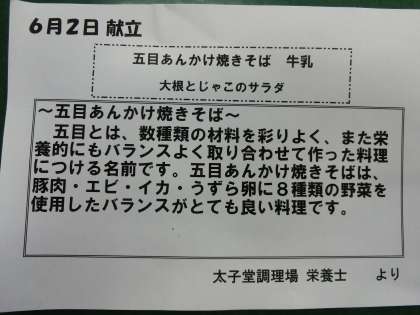 6月2日 献立
五目あんかけ焼きそば　牛乳
大根とじゃこのサラダ
～五目あんかけ焼きそば～
五目とは、数種類の材料を彩りよく、また栄
養的にもバランスよく取り合わせて作った料理
につける名前です。五目あんかけ焼きそばは、
豚肉・エビ・イカ・うずら卵に8種類の野菜を
使用したバランスがとても良い料理です。
太子堂調理場 栄養士　　より